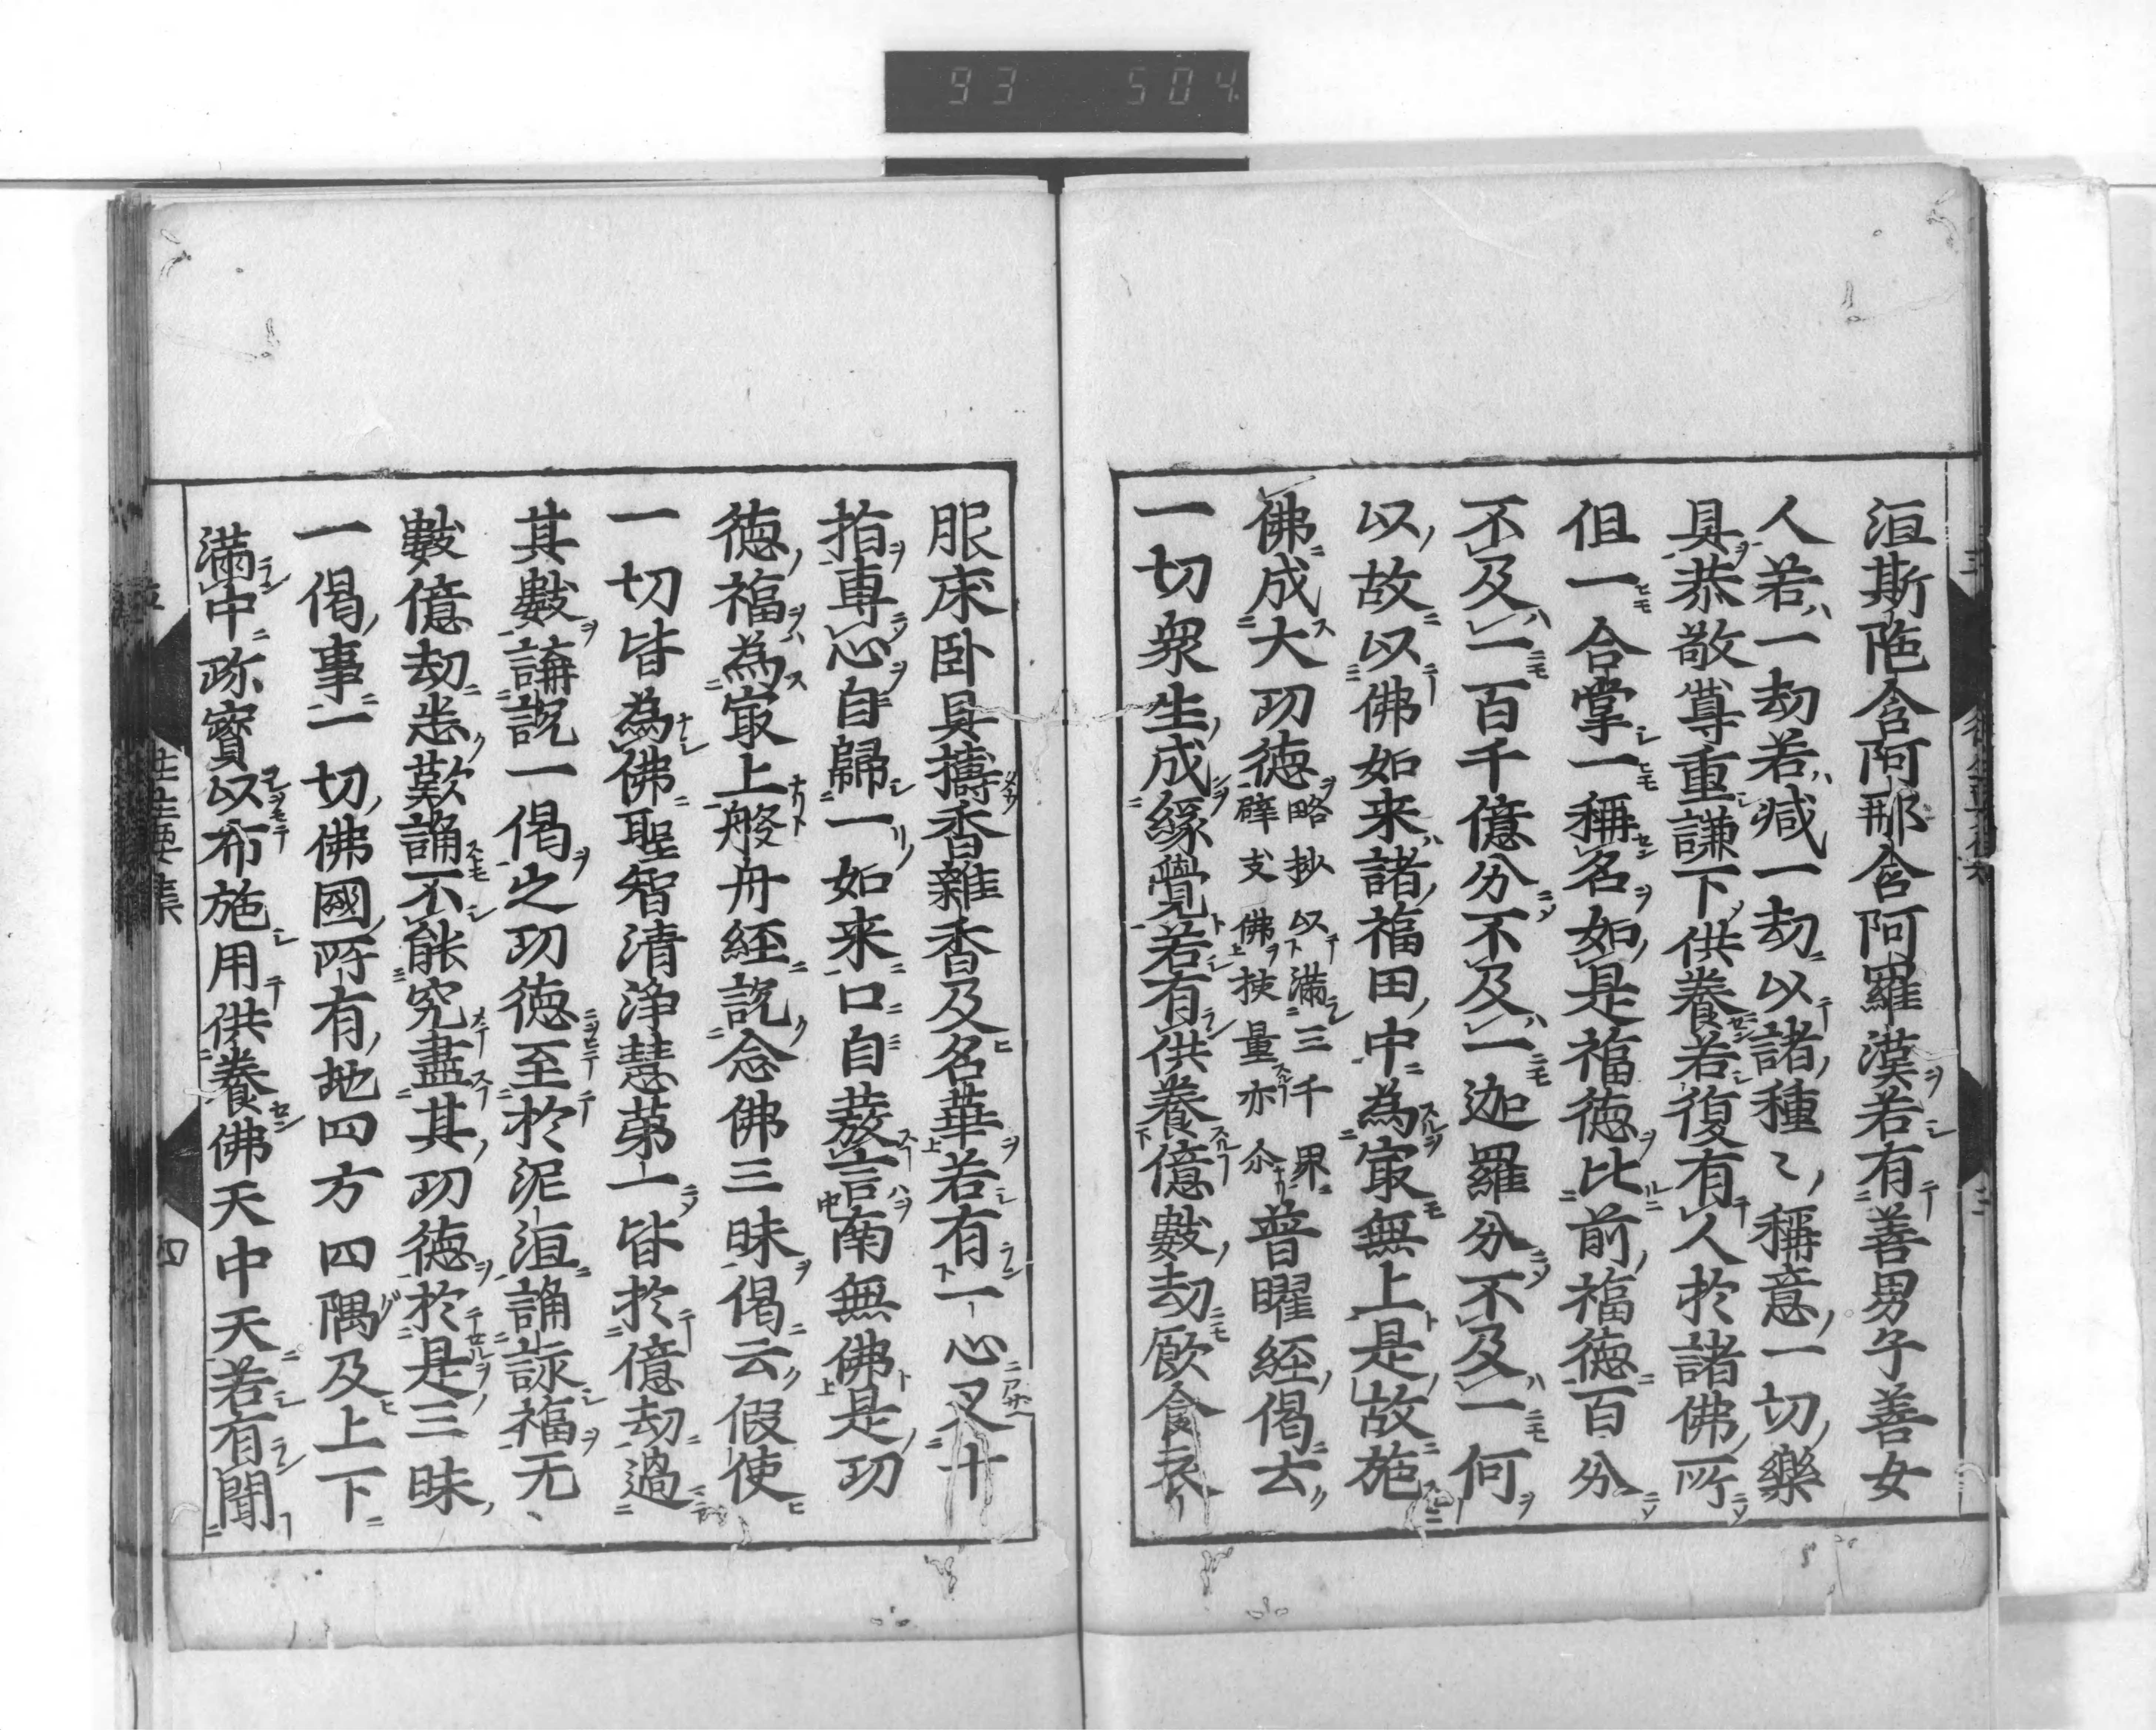 93 504
洹斯陁含阿那含阿羅漢若有善男子善女
人若一劫若减一劫以諸種〻稱意一切樂
具恭敬尊重謙下供養若復有人於諸佛所
但一合掌一稱名如是福徳比前福徳百分
不及一百千億分不及一迦羅分不及一何
以故以佛如来諸福田中為㝡無上是故施
佛成大功徳略抄以滿三千界
辟支佛挍量亦尒普曜經偈云
一切衆生成縁覺若有供養億數劫飲食衣
服床卧具擣香雜香及名華若有一心叉十
指専心自歸一如来口自發言南無佛是功
徳福為㝡上般舟經説念佛三昧偈云假使
一切皆為佛聖智清浄慧苐一皆於億劫過
其數講説一偈之功徳至於泥洹誦詠福无
數億劫悉歎誦不能究盡其功徳於是三昧
一偈事一切佛國所有地四方四隅及上下
滿中珎寳以布施用供養佛天中天若有聞
四